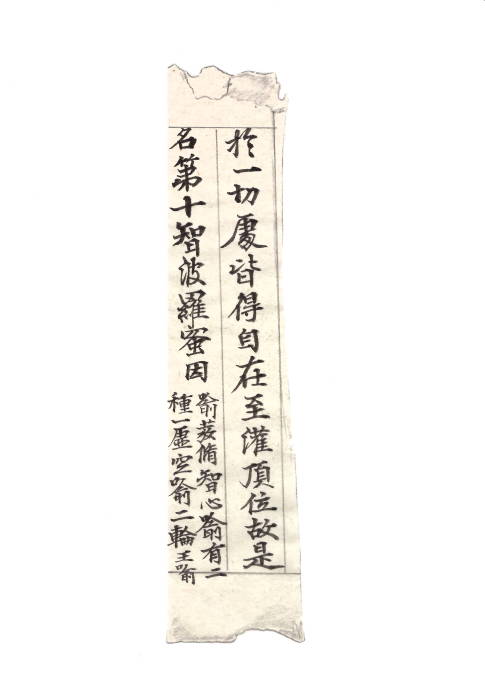 於一切處皆得自在至灌頂位故是
名第十智波羅蜜因
喻發脩智心喻有二
種一虛空喻二輪王喻